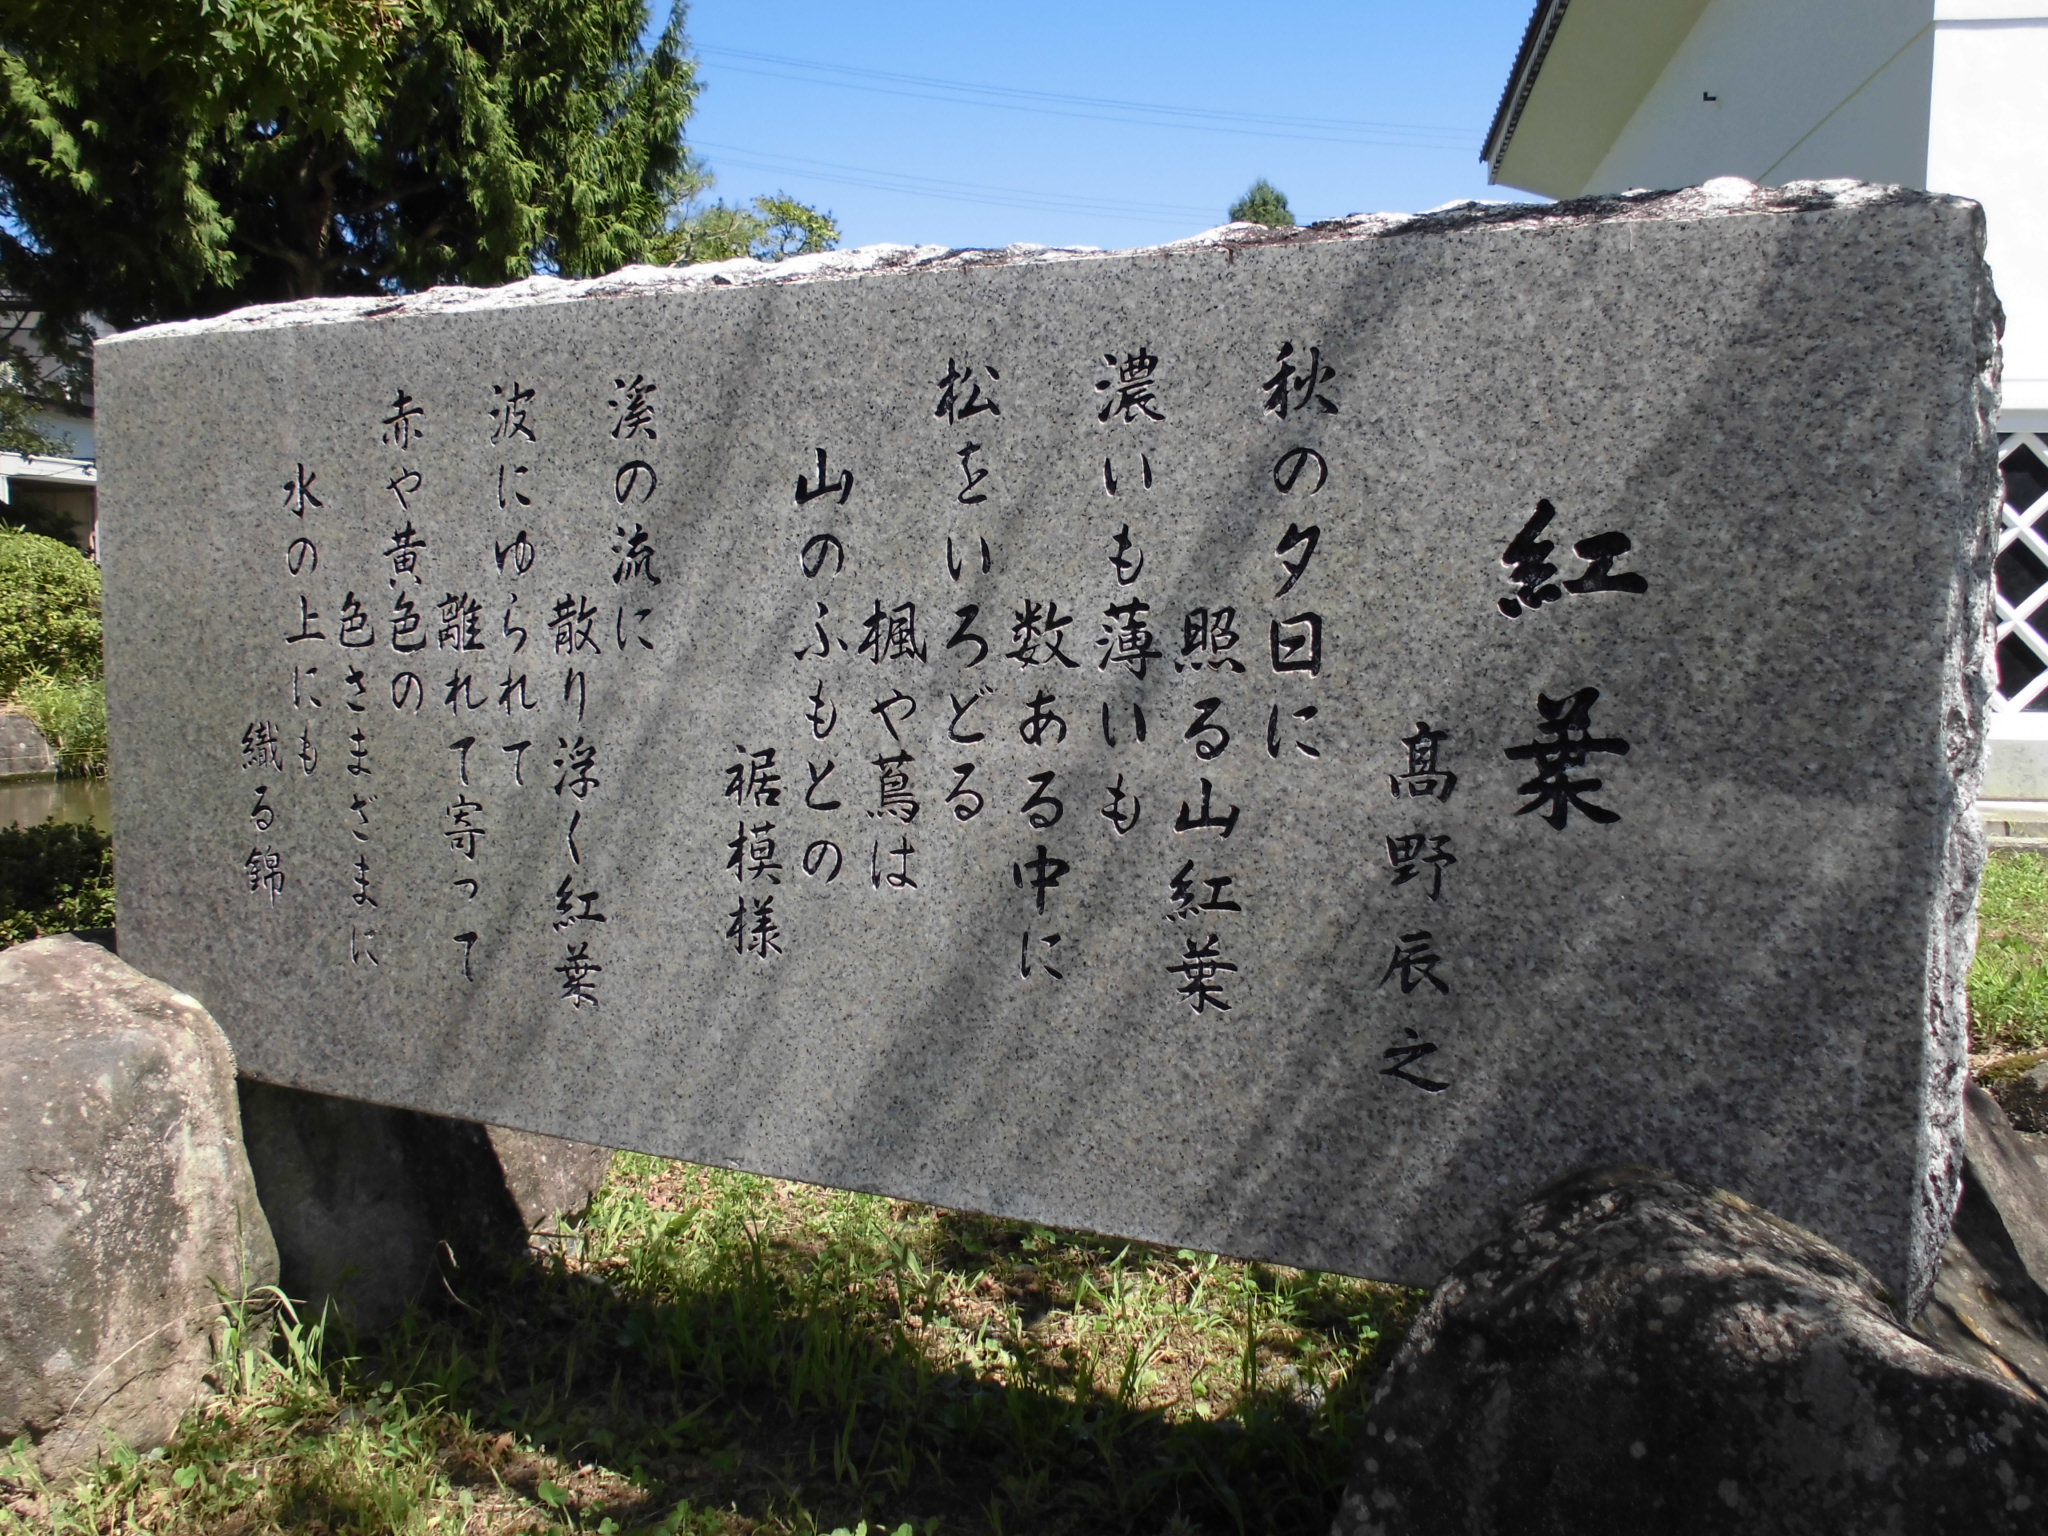 紅葉
髙野辰之
秋の夕日に
照る山紅葉
濃いも薄いも
数ある中に
松をいろどる
楓や蔦は
山のふもとの
裾模様
溪の流に
散り浮く紅葉
波にゆられて
離れて寄って
赤や黄色の
色さまざまに
水の上にも
織る錦